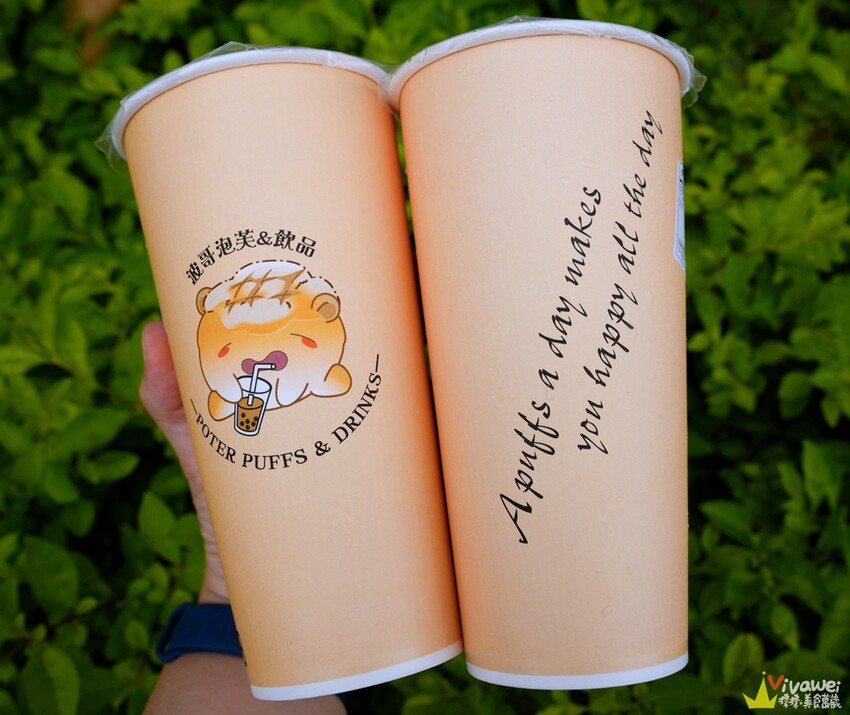 波哥泡芙&飲品
—POTER PUFFS & DRINKS—
A puffs a day makes
you happy all the day
Vivawei